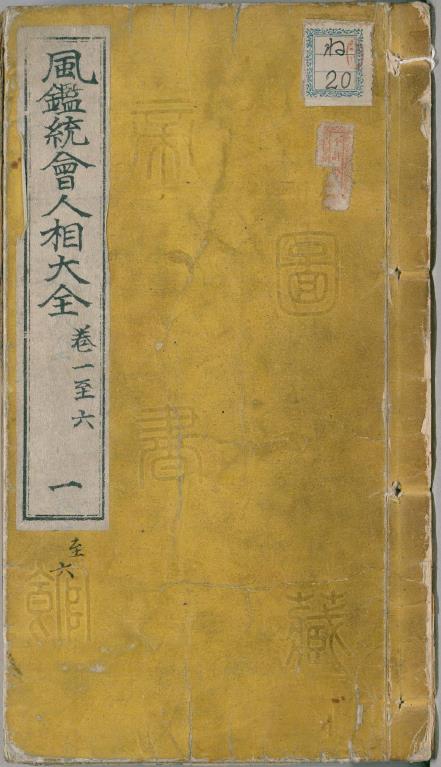 風鑑統會人相大全
巻一至六
一
至六
ね
20
帝
圖
書
館
藏